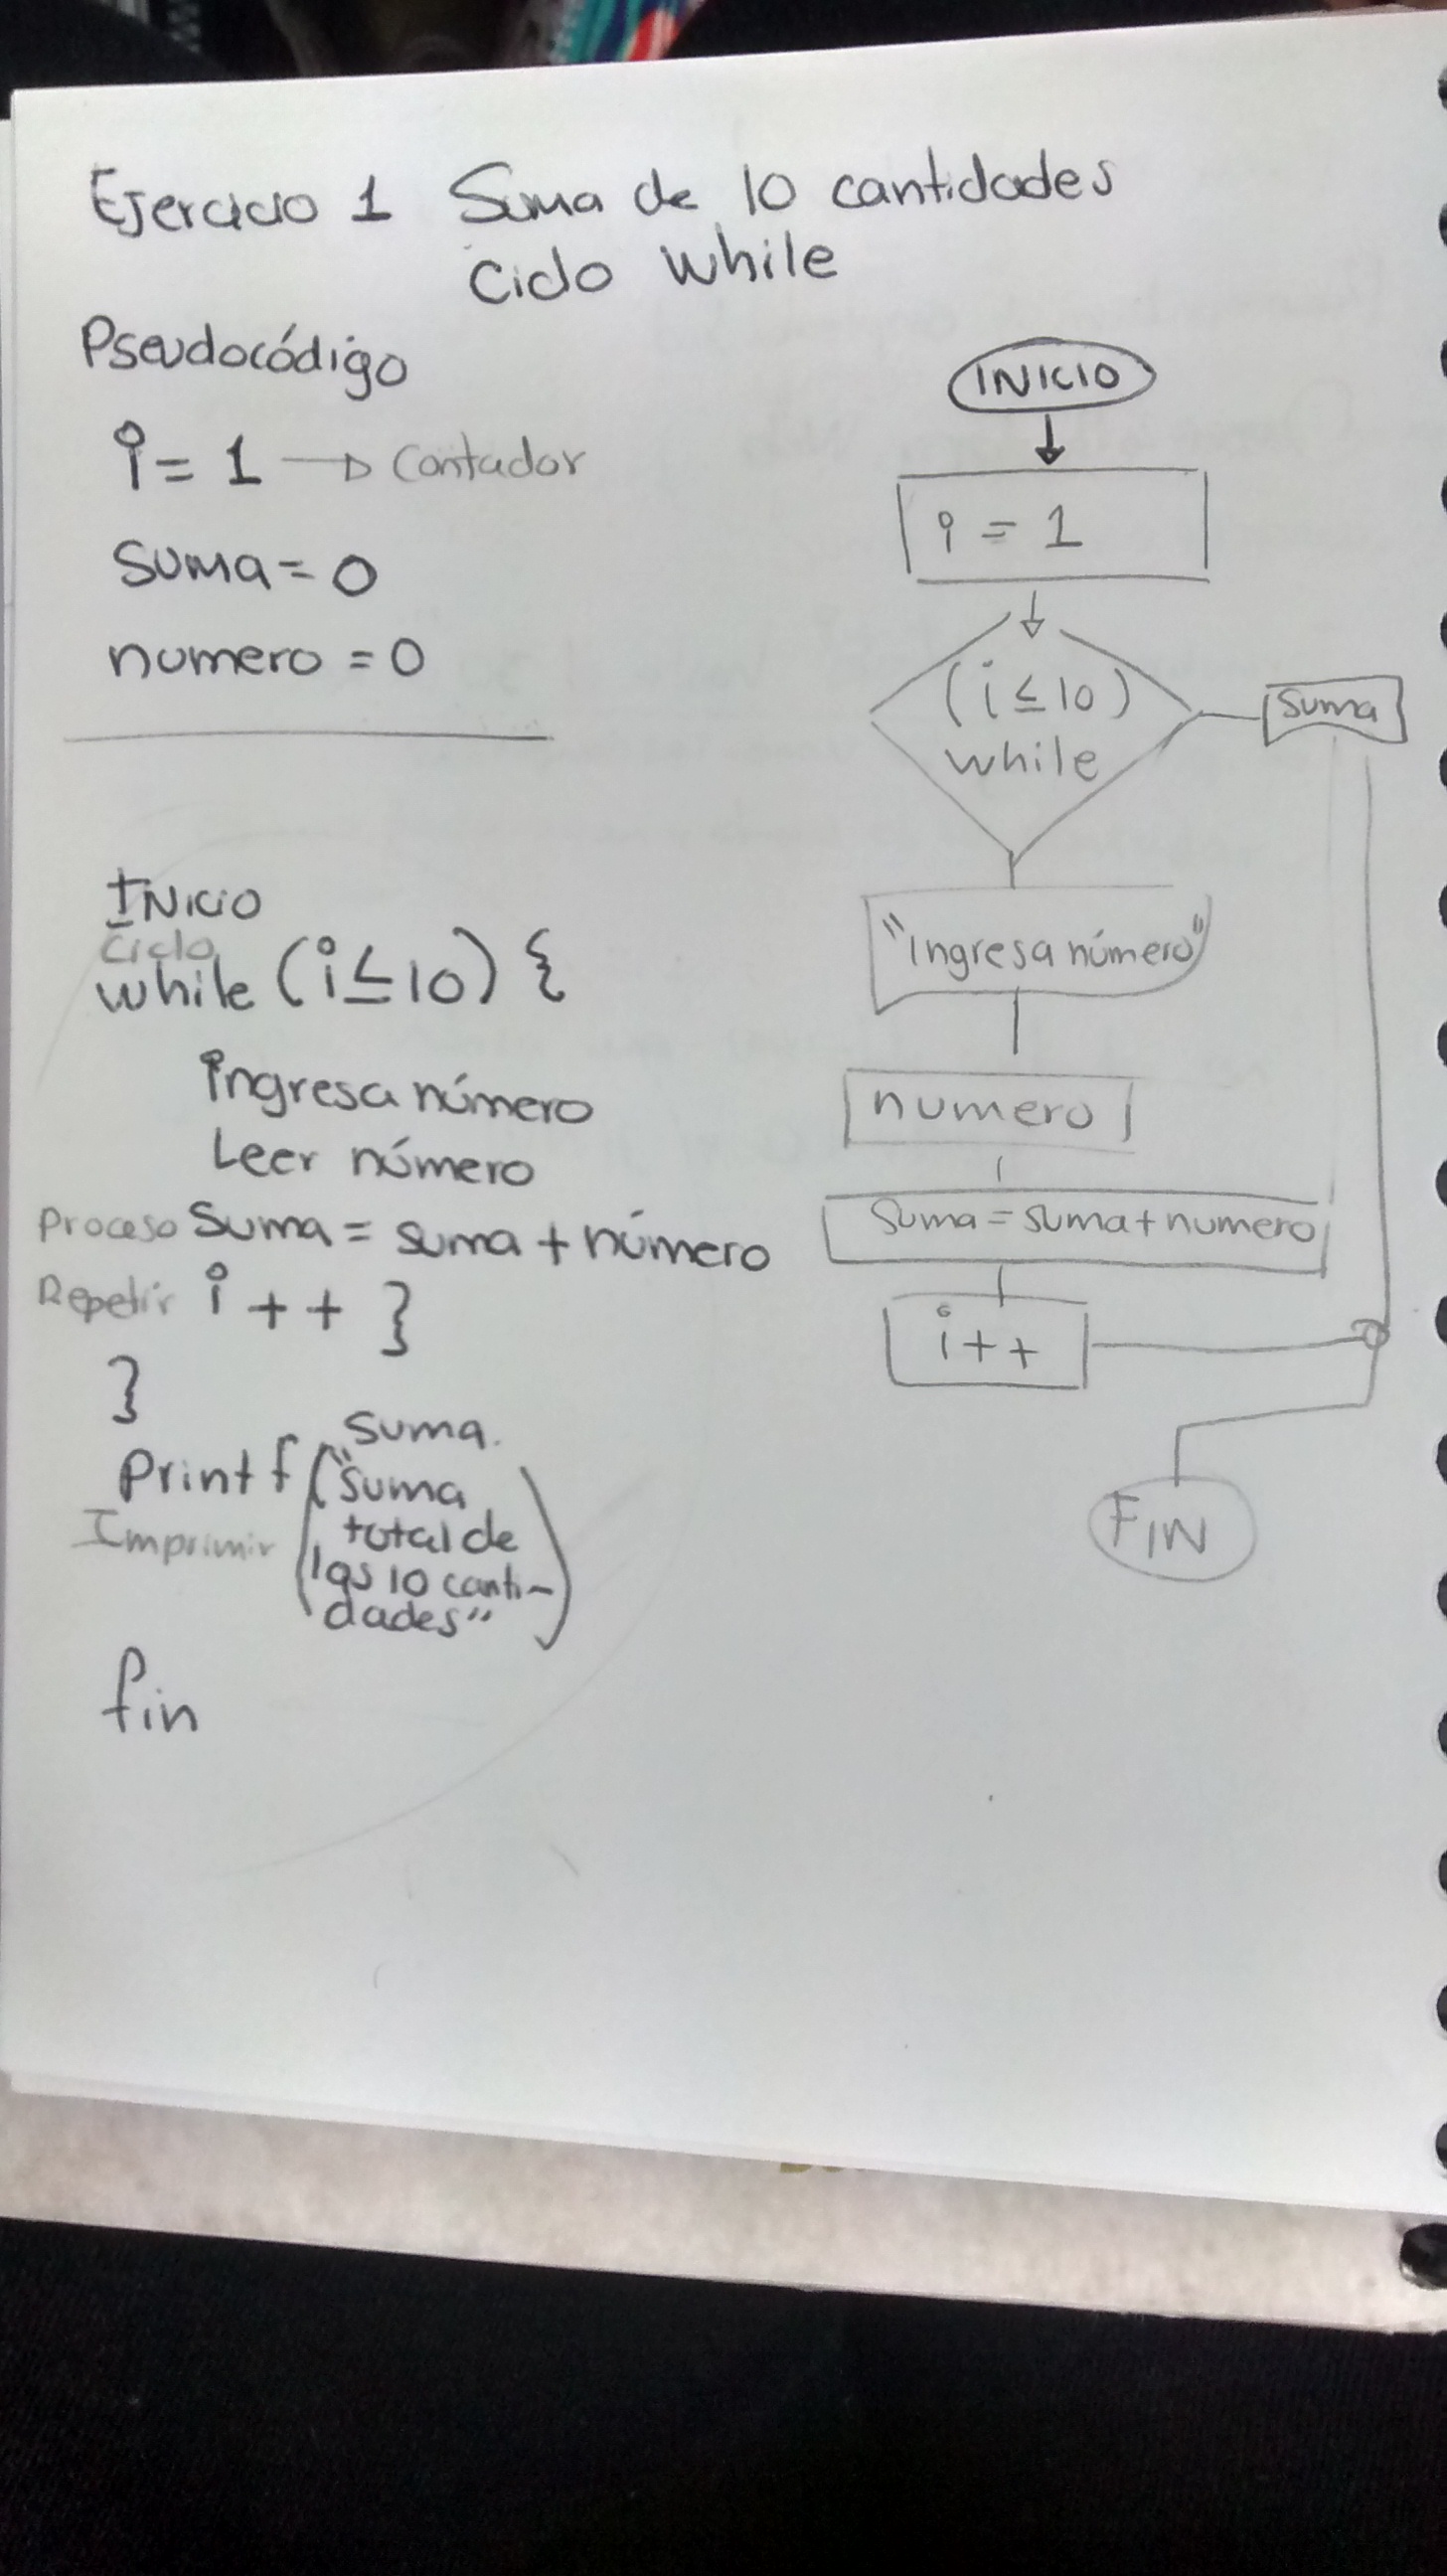 Ejercicio 1 Suma de 10 cantidades
Ciclo while
Pseudocódigo
i = 1 → Contador
Suma = 0
numero = 0
INICIO
Ciclo
while (i ≤ 10) {
ingresa número
Leer número
Proceso Suma = suma + número
Repetir i + + }
}
Suma.
Printf ("suma
Imprimir total de
las 10 canti-
dades")
fin
INICIO
i = 1
(i ≤ 10)
while
Suma
"Ingresa número"
numero
Suma = suma + numero
i + +
FIN